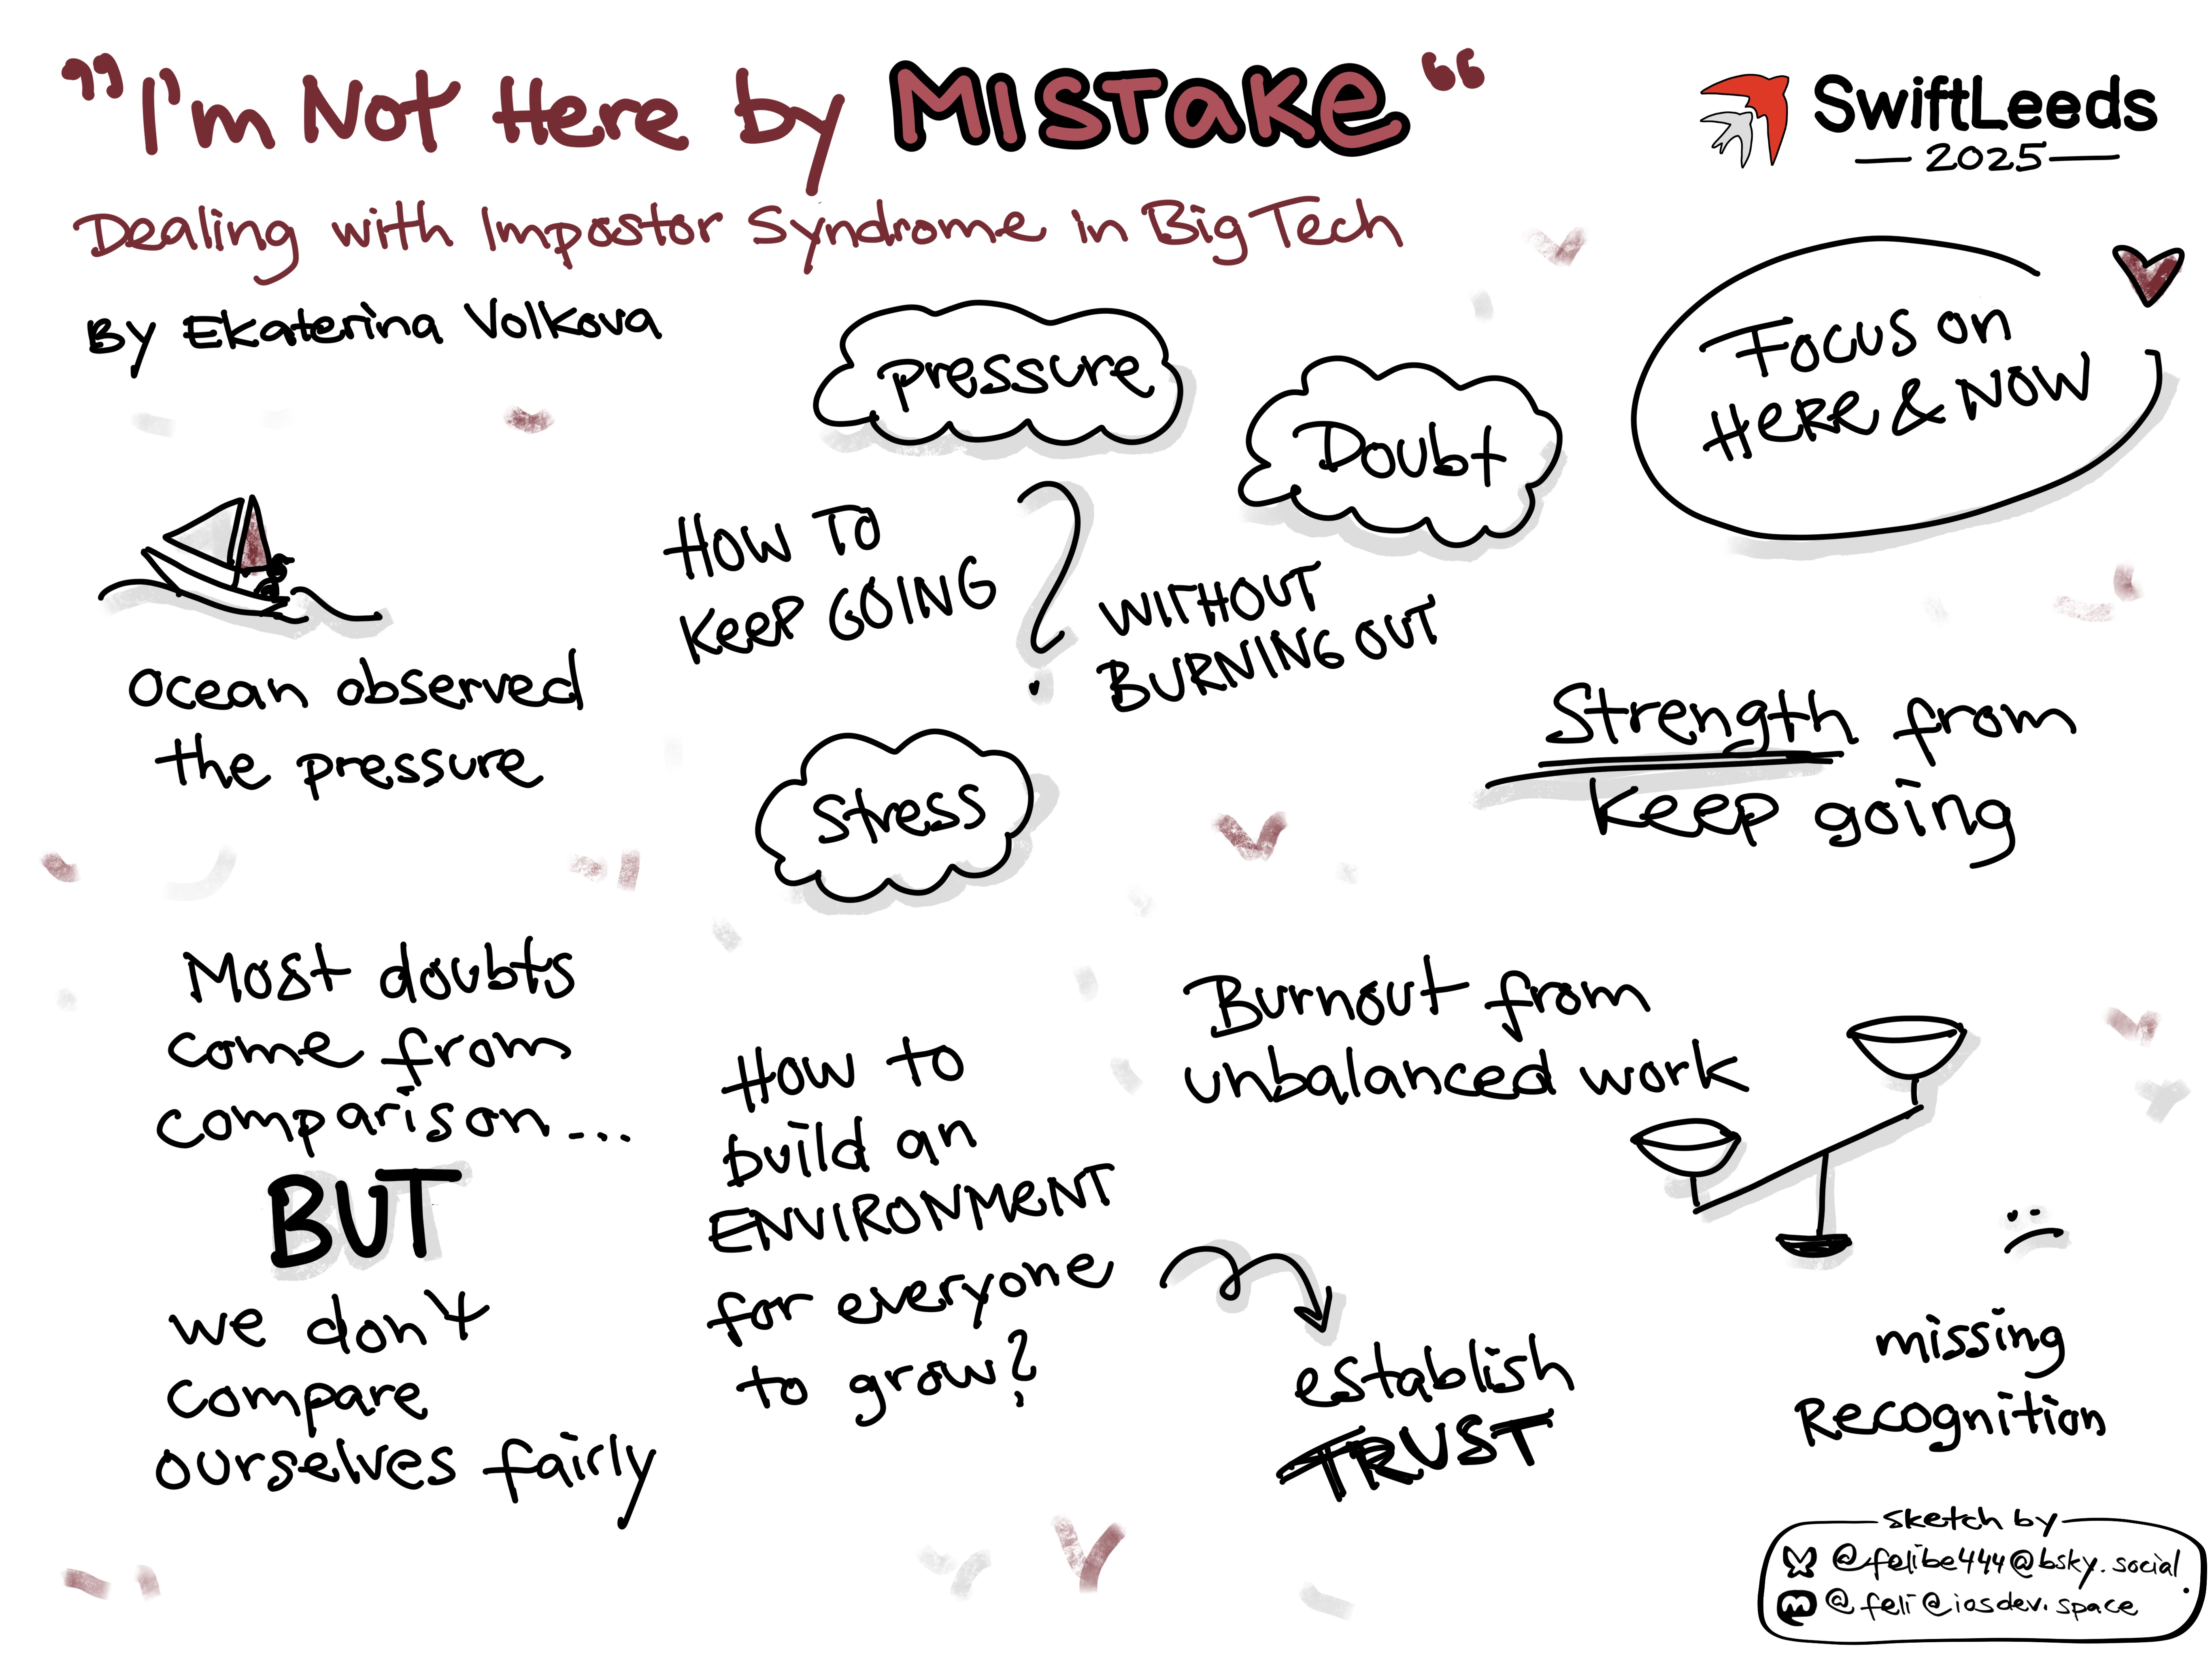 "I'm Not Here by MISTAKE"
SwiftLeeds
2025
Dealing with Impostor Syndrome in Big Tech
By Ekaterina Volkova
pressure
Doubt
Focus on
HERE & NOW
HOW TO
KEEP GOING
?
WITHOUT
BURNING OUT
Ocean observed
the pressure
Stress
Strength from
keep going
Most doubts
come from
comparison...
BUT
we don't
compare
ourselves fairly
How to
build an
ENVIRONMENT
for everyone
to grow?
establish
TRUST
Burnout from
unbalanced work
:(
missing
Recognition
sketch by
@felibe444@bsky.social
@feli@iosdev.space